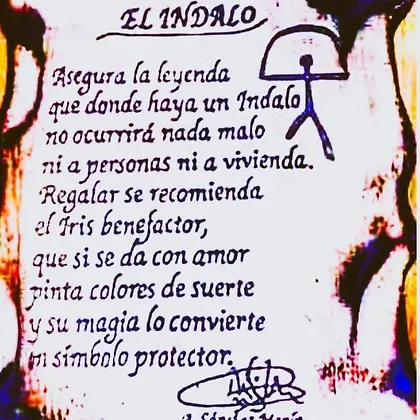 EL INDALO
Asegura la leyenda
que donde haya un Indalo
no ocurrirá nada malo
ni a personas ni a vivienda.
Regalar se recomienda
el Iris benefactor,
que si se da con amor
pinta colores de suerte
y su magia lo convierte
en símbolo protector.